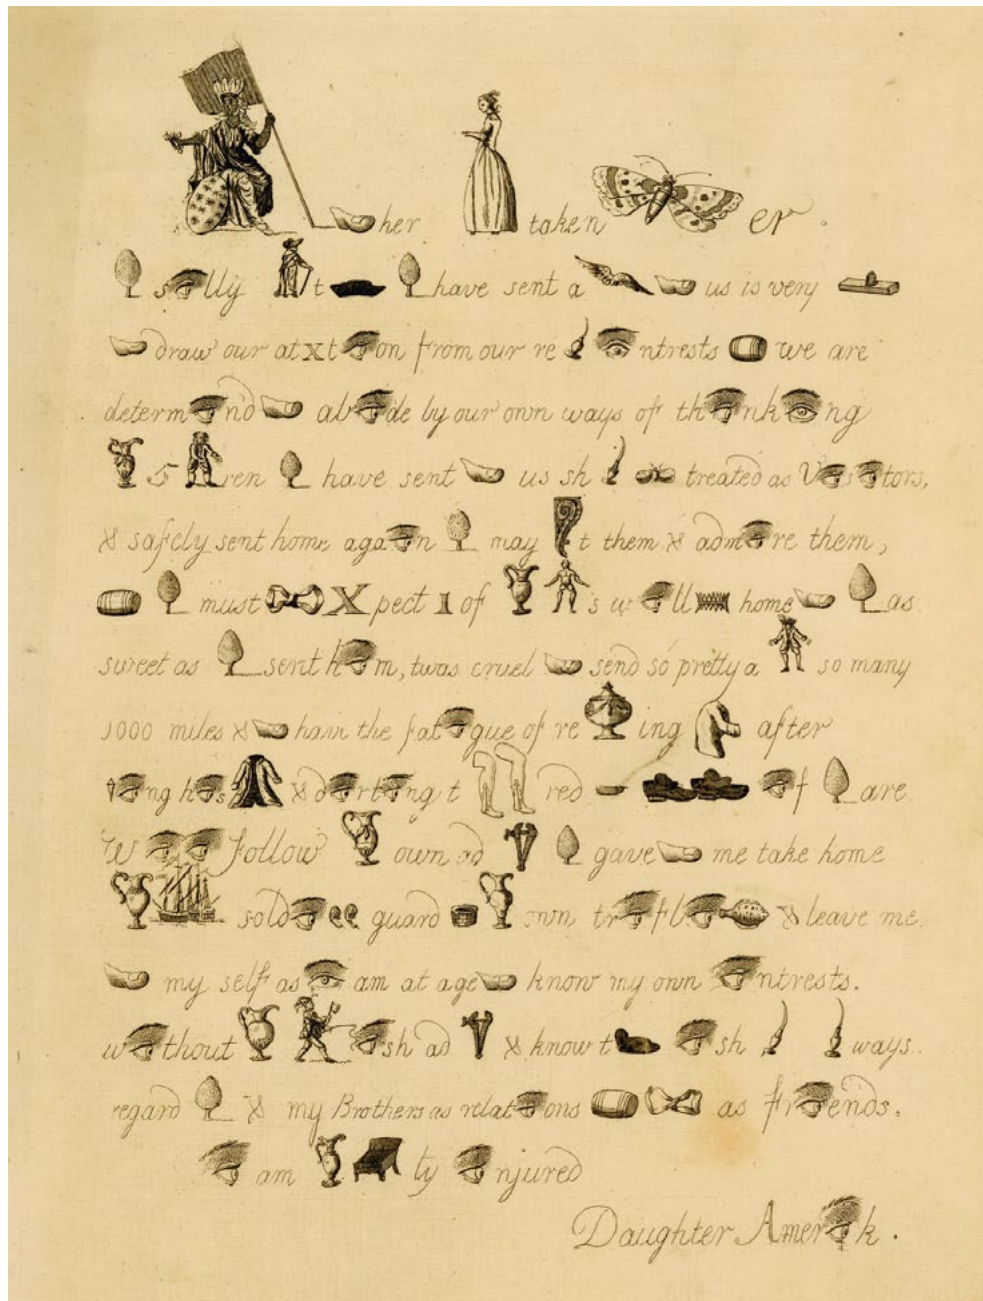 her taken er.
s lly t have sent a us is very
draw our at x t on from our re ntrests we are
determ nd ab de by our own ways of th nk ng
5 ren have sent us sh treated as V s tors,
& safely sent home aga n may t them & adm re them,
must X pect 1 of s w ll home as
sweet as sent h m, twas cruel send so pretty a so many
1000 miles & have the fat gue of re ing after
ng h s & d rt ng t red f are
W follow own ad gave me take home
sold guard own tr fl & leave me
my self as am at age know my own ntrests.
w thout sh ad & know t sh ways
regard & my Brothers as relat ons as fr ends.
am ly njured
Daughter Amer k.